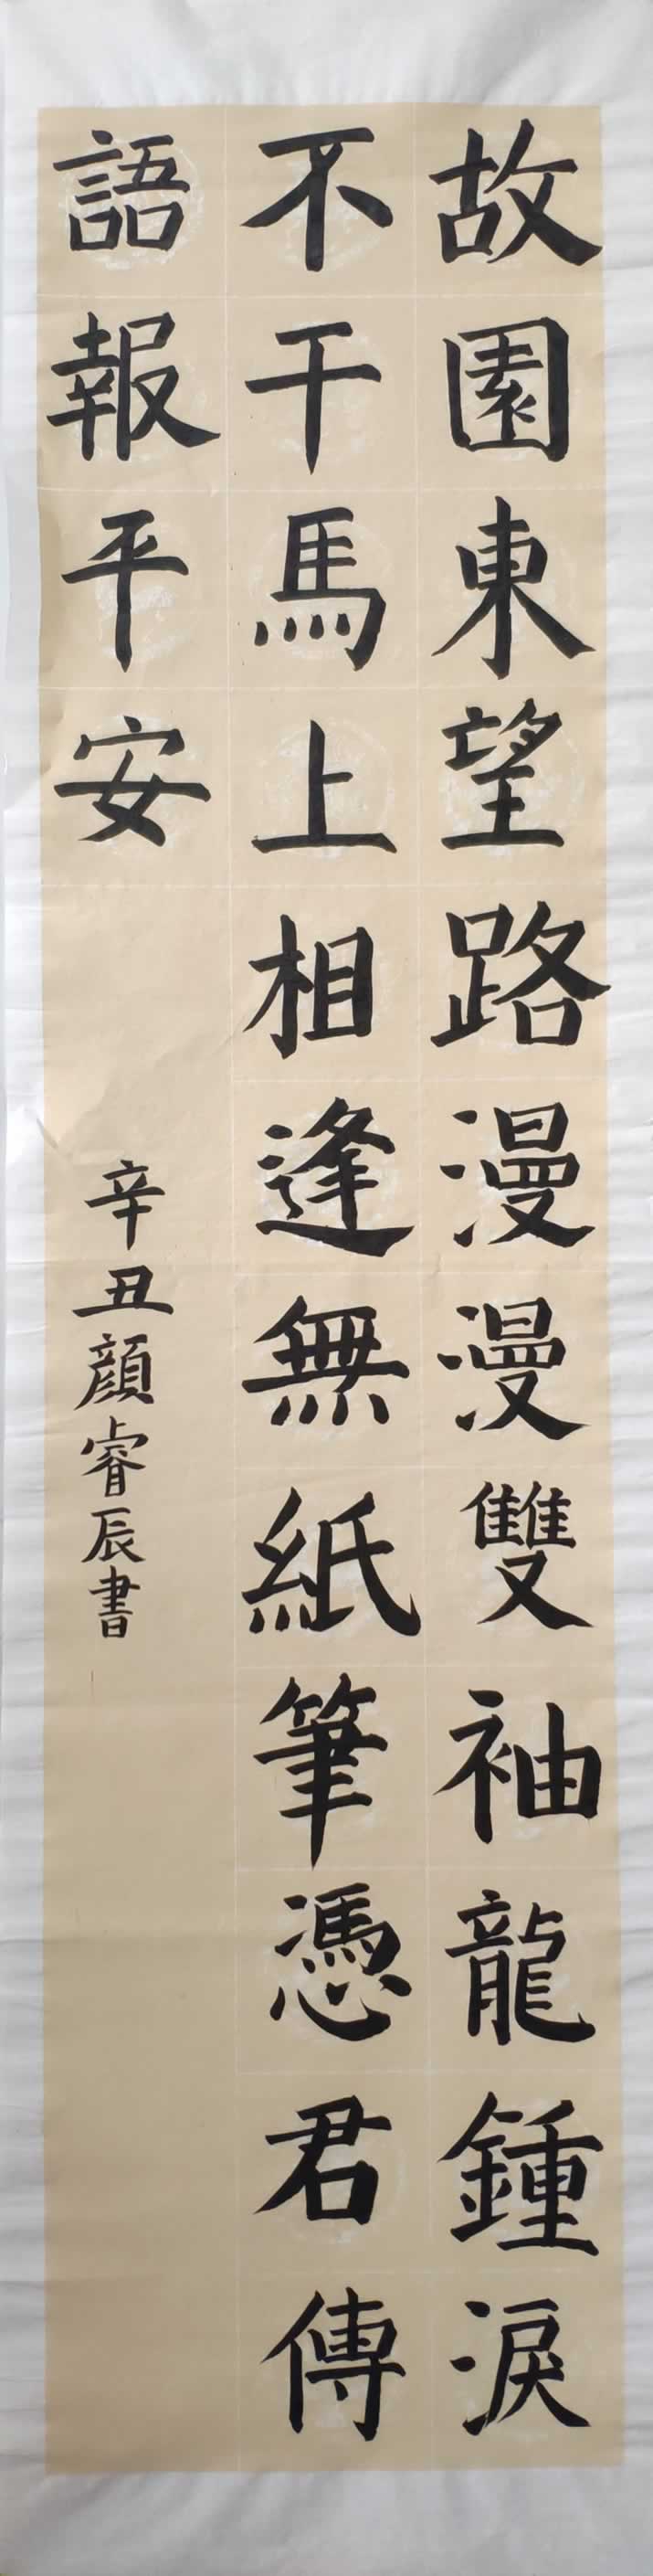 故園東望路漫漫雙袖龍鍾淚
不干馬上相逢無紙筆憑君傳
語報平安
辛丑顏睿辰書